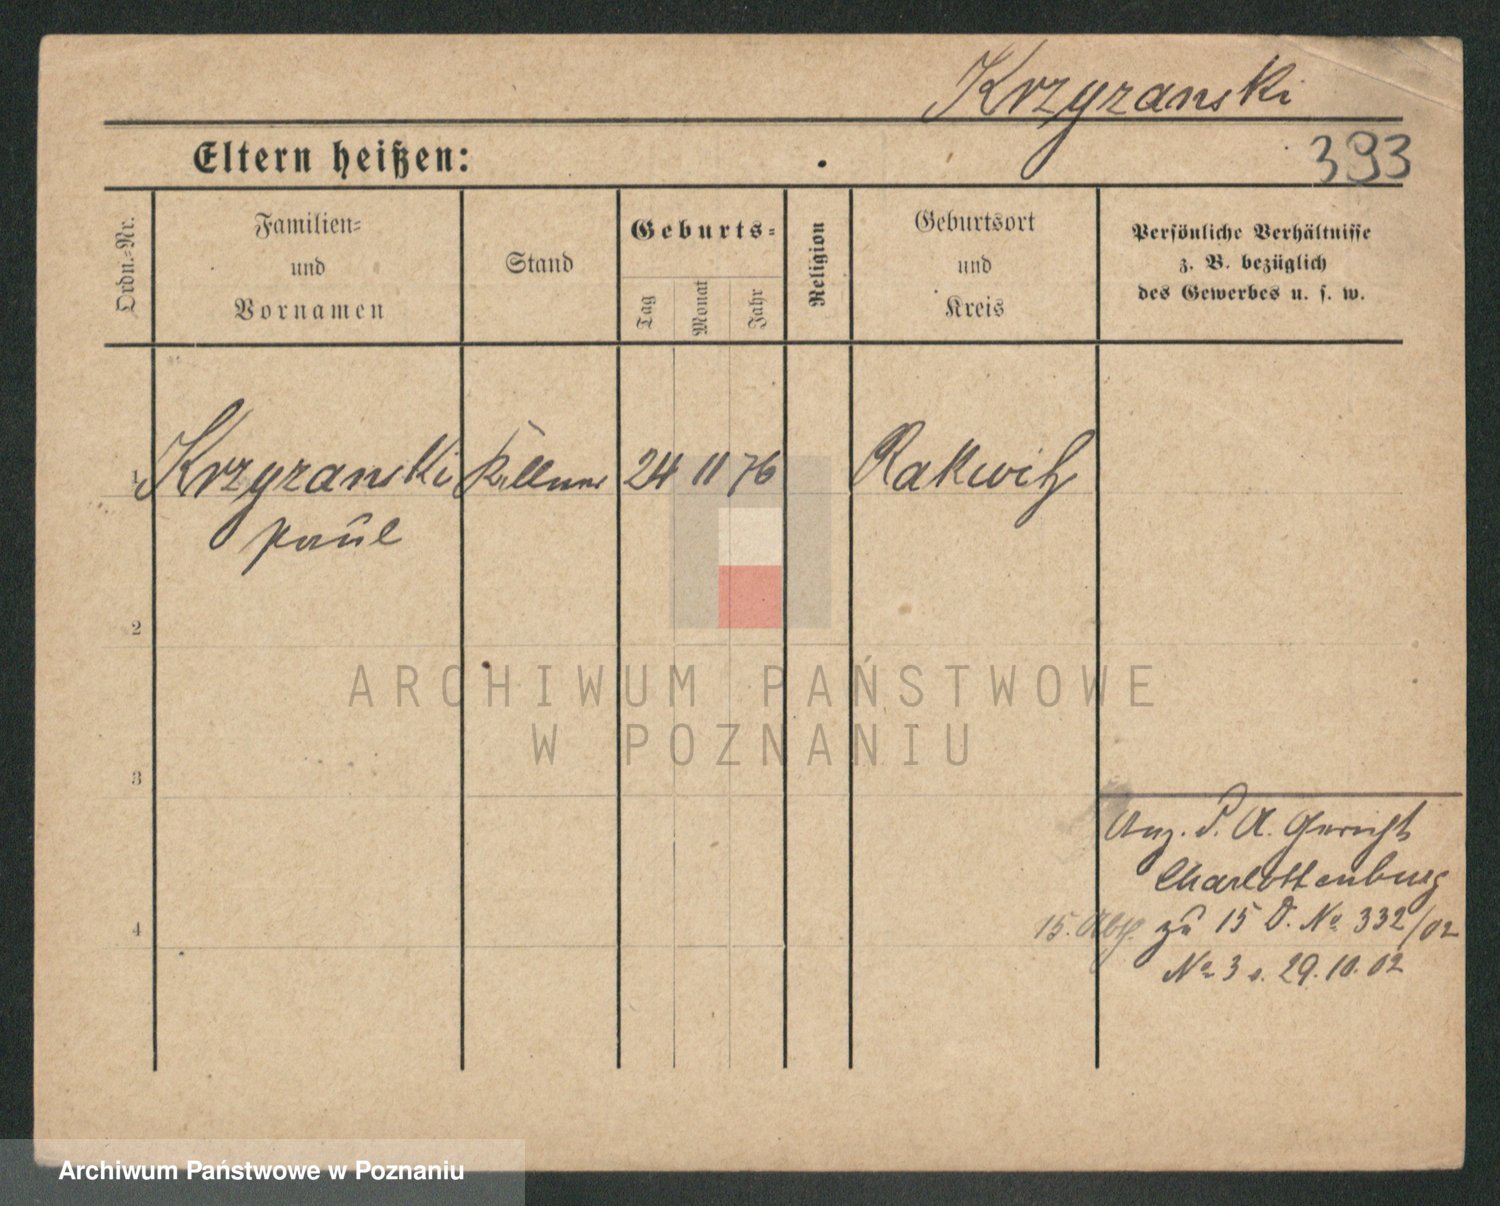 Krzyzanski
Eltern heißen:
393
Ordn.-Nr.
Familien-
und
Vornamen
Stand
Geburts-
Tag
Monat
Jahr
Religion
Geburtsort
und
Kreis
Persönliche Verhältnisse
z. B. bezüglich
des Gewerbes u. s. w.
1 Krzyzanski Kellner 24 11 76 Rakwitz
Paul
2
ARCHIWUM PAŃSTWOWE
W POZNANIU
3
Anz. d. A. Gericht
Charlottenburg
4
15. zu 15 D. No 332/02
No 3 v. 29.10.02
Archiwum Państwowe w Poznaniu